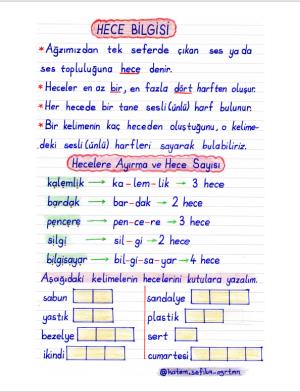 HECE BİLGİSİ
* Ağzımızdan tek seferde çıkan ses ya da
ses topluluğuna hece denir.
* Heceler en az bir, en fazla dört harften oluşur.
* Her hecede bir tane sesli(ünlü) harf bulunur.
* Bir kelimenin kaç heceden oluştuğunu, o kelime-
deki sesli(ünlü) harfleri sayarak bulabiliriz.
Hecelere Ayırma ve Hece Sayısı
kalemlik → ka-lem-lik → 3 hece
bardak → bar-dak → 2 hece
pencere → pen-ce-re → 3 hece
silgi → sil-gi → 2 hece
bilgisayar → bil-gi-sa-yar → 4 hece
Aşağıdaki kelimelerin hecelerini kutulara yazalım.
sabun sandalye
yastık plastik
bezelye sert
ikindi cumartesi
@hatem_sefikn_ogrtmn